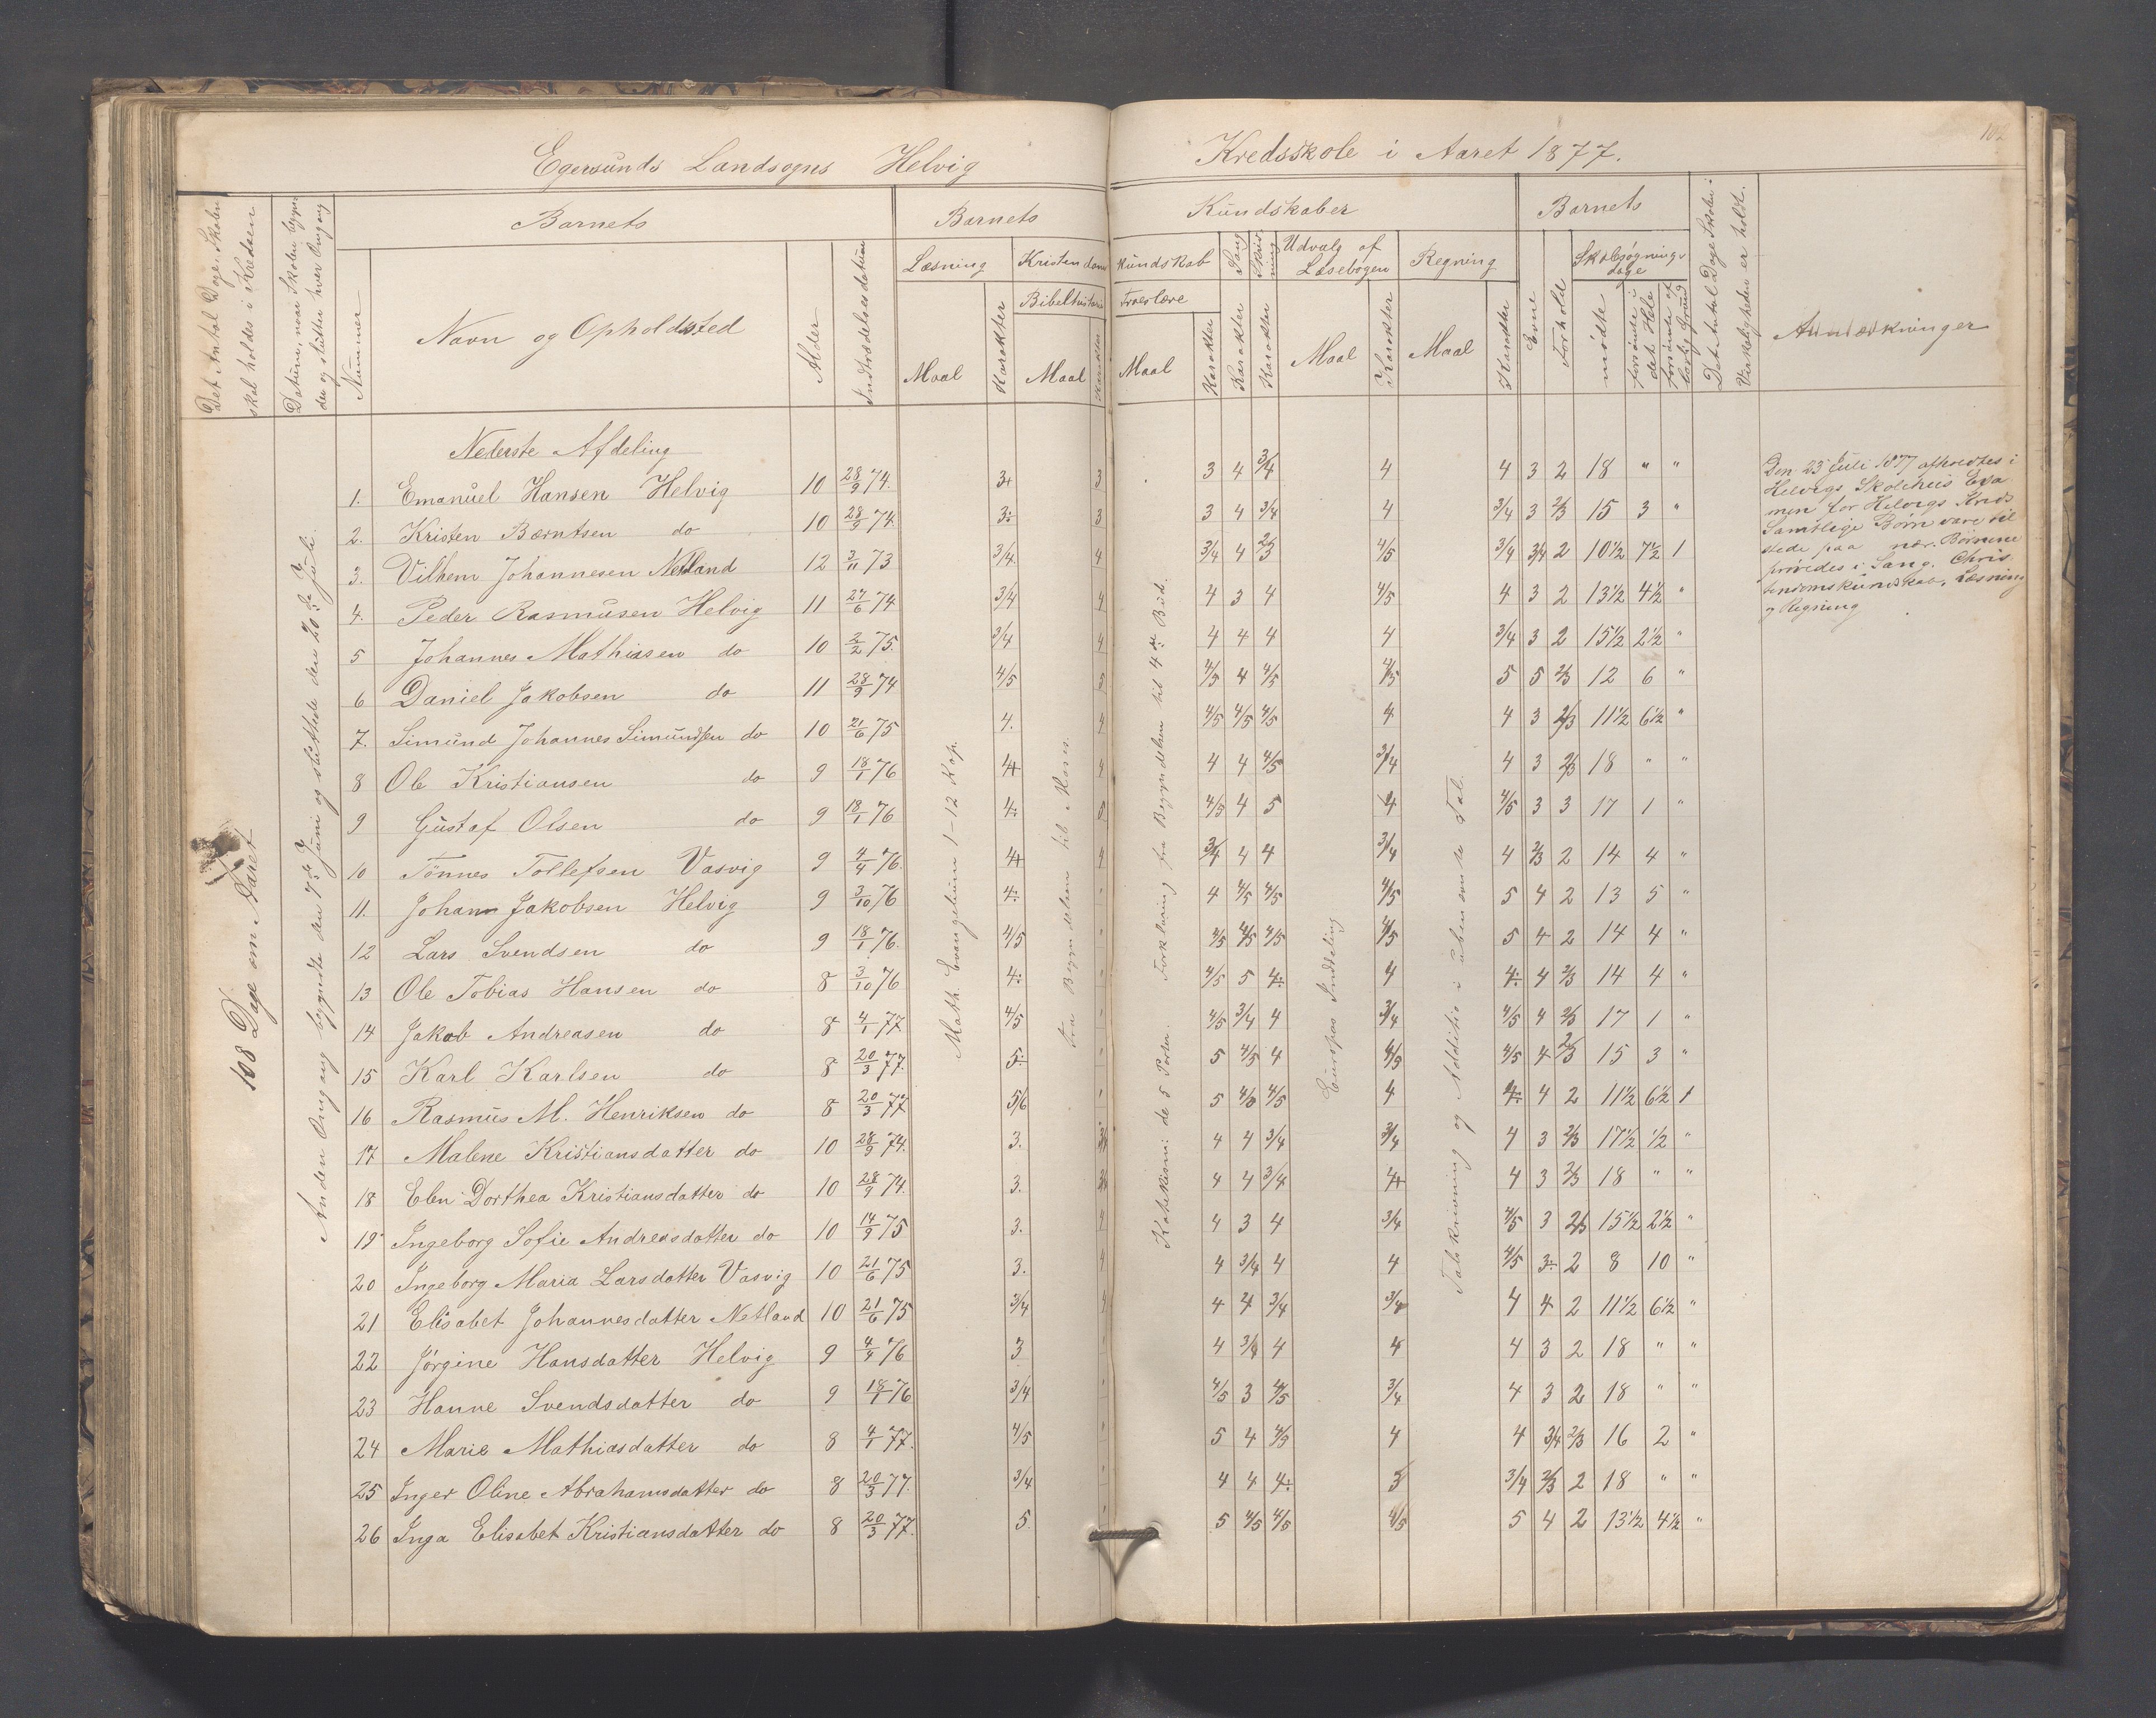 102
Egersunds Landsogns Helvig Kredsskole i Aaret 1877.
Det Antal Dage, Skolen skal holdes i Kredsen
Datum, naar Skolen begynder og slutter hver Omgang
Barnets
Barnets Kundskaber
Barnets
Det Antal Dage Skolen i Virkeligheden er holdt.
Anmærkninger
Nummer
Navn og Opholdssted
Alder
Indtrædelsesdatum
Læsning
Kristendomskundskab
Sang
Skrivning
Udvalg af Læsebogen
Regning
Evne
Forhold
Skolesøgningsdage
Bibelhistorie
Troeslære
mødte
forsømte i det Hele
forsømte af lovlig Grund
Maal Karakter Maal Karakter Maal Karakter Karakter Karakter Maal Karakter Maal Karakter
108 Dage om Aaret
Anden Omgang begyndte den 7de Juni og sluttede den 20de Juli.
Math. Evangelium 1-12 Kap.
Fra Begyndelsen til Moses.
Katekismi de 5 Parter. Forklaring fra Begyndelsen til 4de Bud.
Europas Inddeling
Talskrivning og Addition i ubenævnte Tal.
Nederste Afdeling
1. Emanuel Hansen Helvig 10 28/9 74. 3+ 3 3 4 3/4 4 4 3 2 18 " "
2. Kristen Bærntsen do 10 28/9 74. 3÷ 3 3 4 3/4 4 3/4 3 2/3 15 3 "
3. Vilhem Johannesen Netland 12 3/11 73 3/4 4 3/4 4 2/3 4/5 3/4 3/4 2 10 1/2 7 1/2 1
4. Peder Rasmusen Helvig 11 27/6 74 3/4 4 4 3 4 4/5 4 3 2 13 1/2 4 1/2 "
5 Johannes Mathiasen do 10 2/2 75. 3/4 4 4 4 4 4 3/4 3 2 15 1/2 2 1/2 "
6 Daniel Jakobsen do 11 28/9 74 4/5 5 4/5 4 4/5 4/5 5 5 2/3 12 6 "
7. Simund Johannes Simundsen do 10 21/6 75 4. 4 4/5 4/5 4/5 4 4 3 2/3 11 1/2 6 1/2 "
8 Ole Kristiansen do 9 18/1 76 4+ 4 4 4 4/5 3/4 4 3 2/3 18 " "
9 Gustaf Olsen do 9 18/1 76 4÷ 5 4/5 4 5 4 4/5 3 3 17 1 "
10 Tönnes Tollefsen Vasvig 9 4/4 76. 4+ 4 3/4 4 4 3/4 4 2/3 2 14 4 "
11. Johan Jakobsen Helvig 9 3/10 76 4÷ " 4 4/5 4/5 4/5 5 4 2 13 5 "
12 Lars Svendsen do 9 18/1 76. 4/5 " 4/5 4/5 4/5 4/5 5 4 2 14 4 "
13 Ole Tobias Hansen do 8 3/10 76 4÷ " 4/5 5 4÷ 4 4÷ 4 2/3 14 4 "
14 Jakob Andreasen do 8 4/1 77 4/5 " 4/5 3/4 4 3/4 4/5 4 2/3 17 1 "
15 Karl Karlsen do 8 20/3 77. 5÷ " 5 4/5 4 4/5 4/5 4 2/3 15 3 "
16 Rasmus M. Henriksen do 8 20/3 77 5/6 " 5 4/5 4/5 4 4÷ 4 2 11 1/2 6 1/2 1
17 Malene Kristiansdatter do 10 28/9 74. 3. 3/4 4 4 3/4 3/4 4 3 2/3 17 1/2 1/2 "
18 Elen Dorthea Kristiansdatter do 10 28/9 74. 3. 3/4 4 4 3/4 4+ 4 3 2/3 18 " "
19 Ingeborg Sofie Andreasdatter do 10 14/9 75 3. 4 4 3 4 3/4 4/5 3 2/3 15 1/2 2 1/2 "
20 Ingeborg Maria Larsdatter Vasvig 10 21/6 75 3. 4 4 3/4 4 4 4/5 3÷ 2 8 10 "
21 Elisabet Johannesdatter Netland 10 21/6 75 3/4 4 4 4 3/4 3/4 4 4 2 11 1/2 6 1/2 "
22 Jørgine Hansdatter Helvig 9 4/4 76 3 " 4 3/4 4 4 4 3 2 18 " "
23 Hanne Svendsdatter do 9 18/1 76 3/4 " 4/5 3 4/5 3/4 4 3 2 18 " "
24 Marie Mathiasdatter do 8 4/1 77. 4/5 " 5 4 4/5 4 4 3/4 2/3 16 2 "
25 Inger Oline Abrahamsdatter do 8 20/3 77. 3/4 " 4 4 4÷ 3 3/4 2/3 2 18 " "
26 Inga Elisabet Kristiansdatter do 8 20/3 77. 5 " 5 4/5 4/5 4/5 5 4 2 13 1/2 4 1/2 "
Den 23 Juli 1877 afholdtes i
Helvigs Skolehus Exa
men for Helvigs Kreds
Samtlige Børn vare til
stede paa nær. Børnene
prøvedes i Sang, Chris
tendomskundskab, Læsning
og Regning